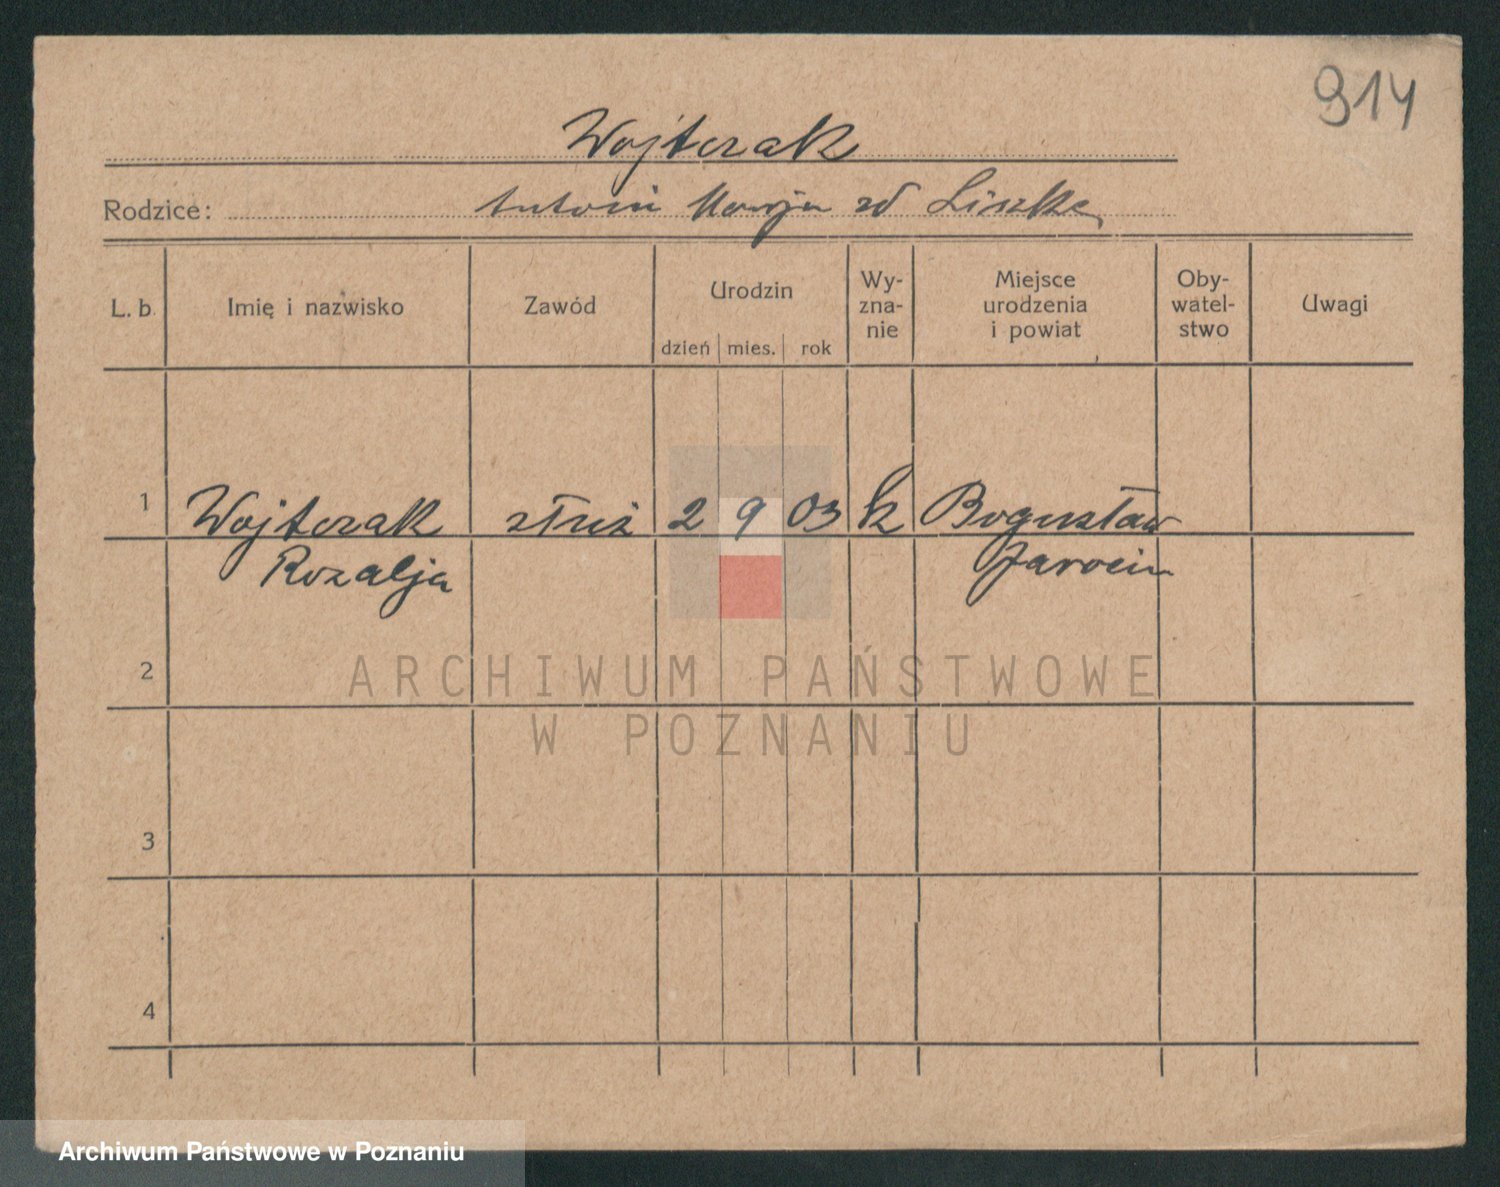 914
Wojtczak
Rodzice: Antoni Marja zd Liszka
L. b. Imię i nazwisko Zawód Urodzin dzień mies. rok Wy-zna-nie Miejsce urodzenia i powiat Oby-watel-stwo Uwagi
1 Wojtczak służ 2 9 03 k Bogusław
Rozalja Jarocin
2
ARCHIWUM PAŃSTWOWE
W POZNANIU
3
4
Archiwum Państwowe w Poznaniu